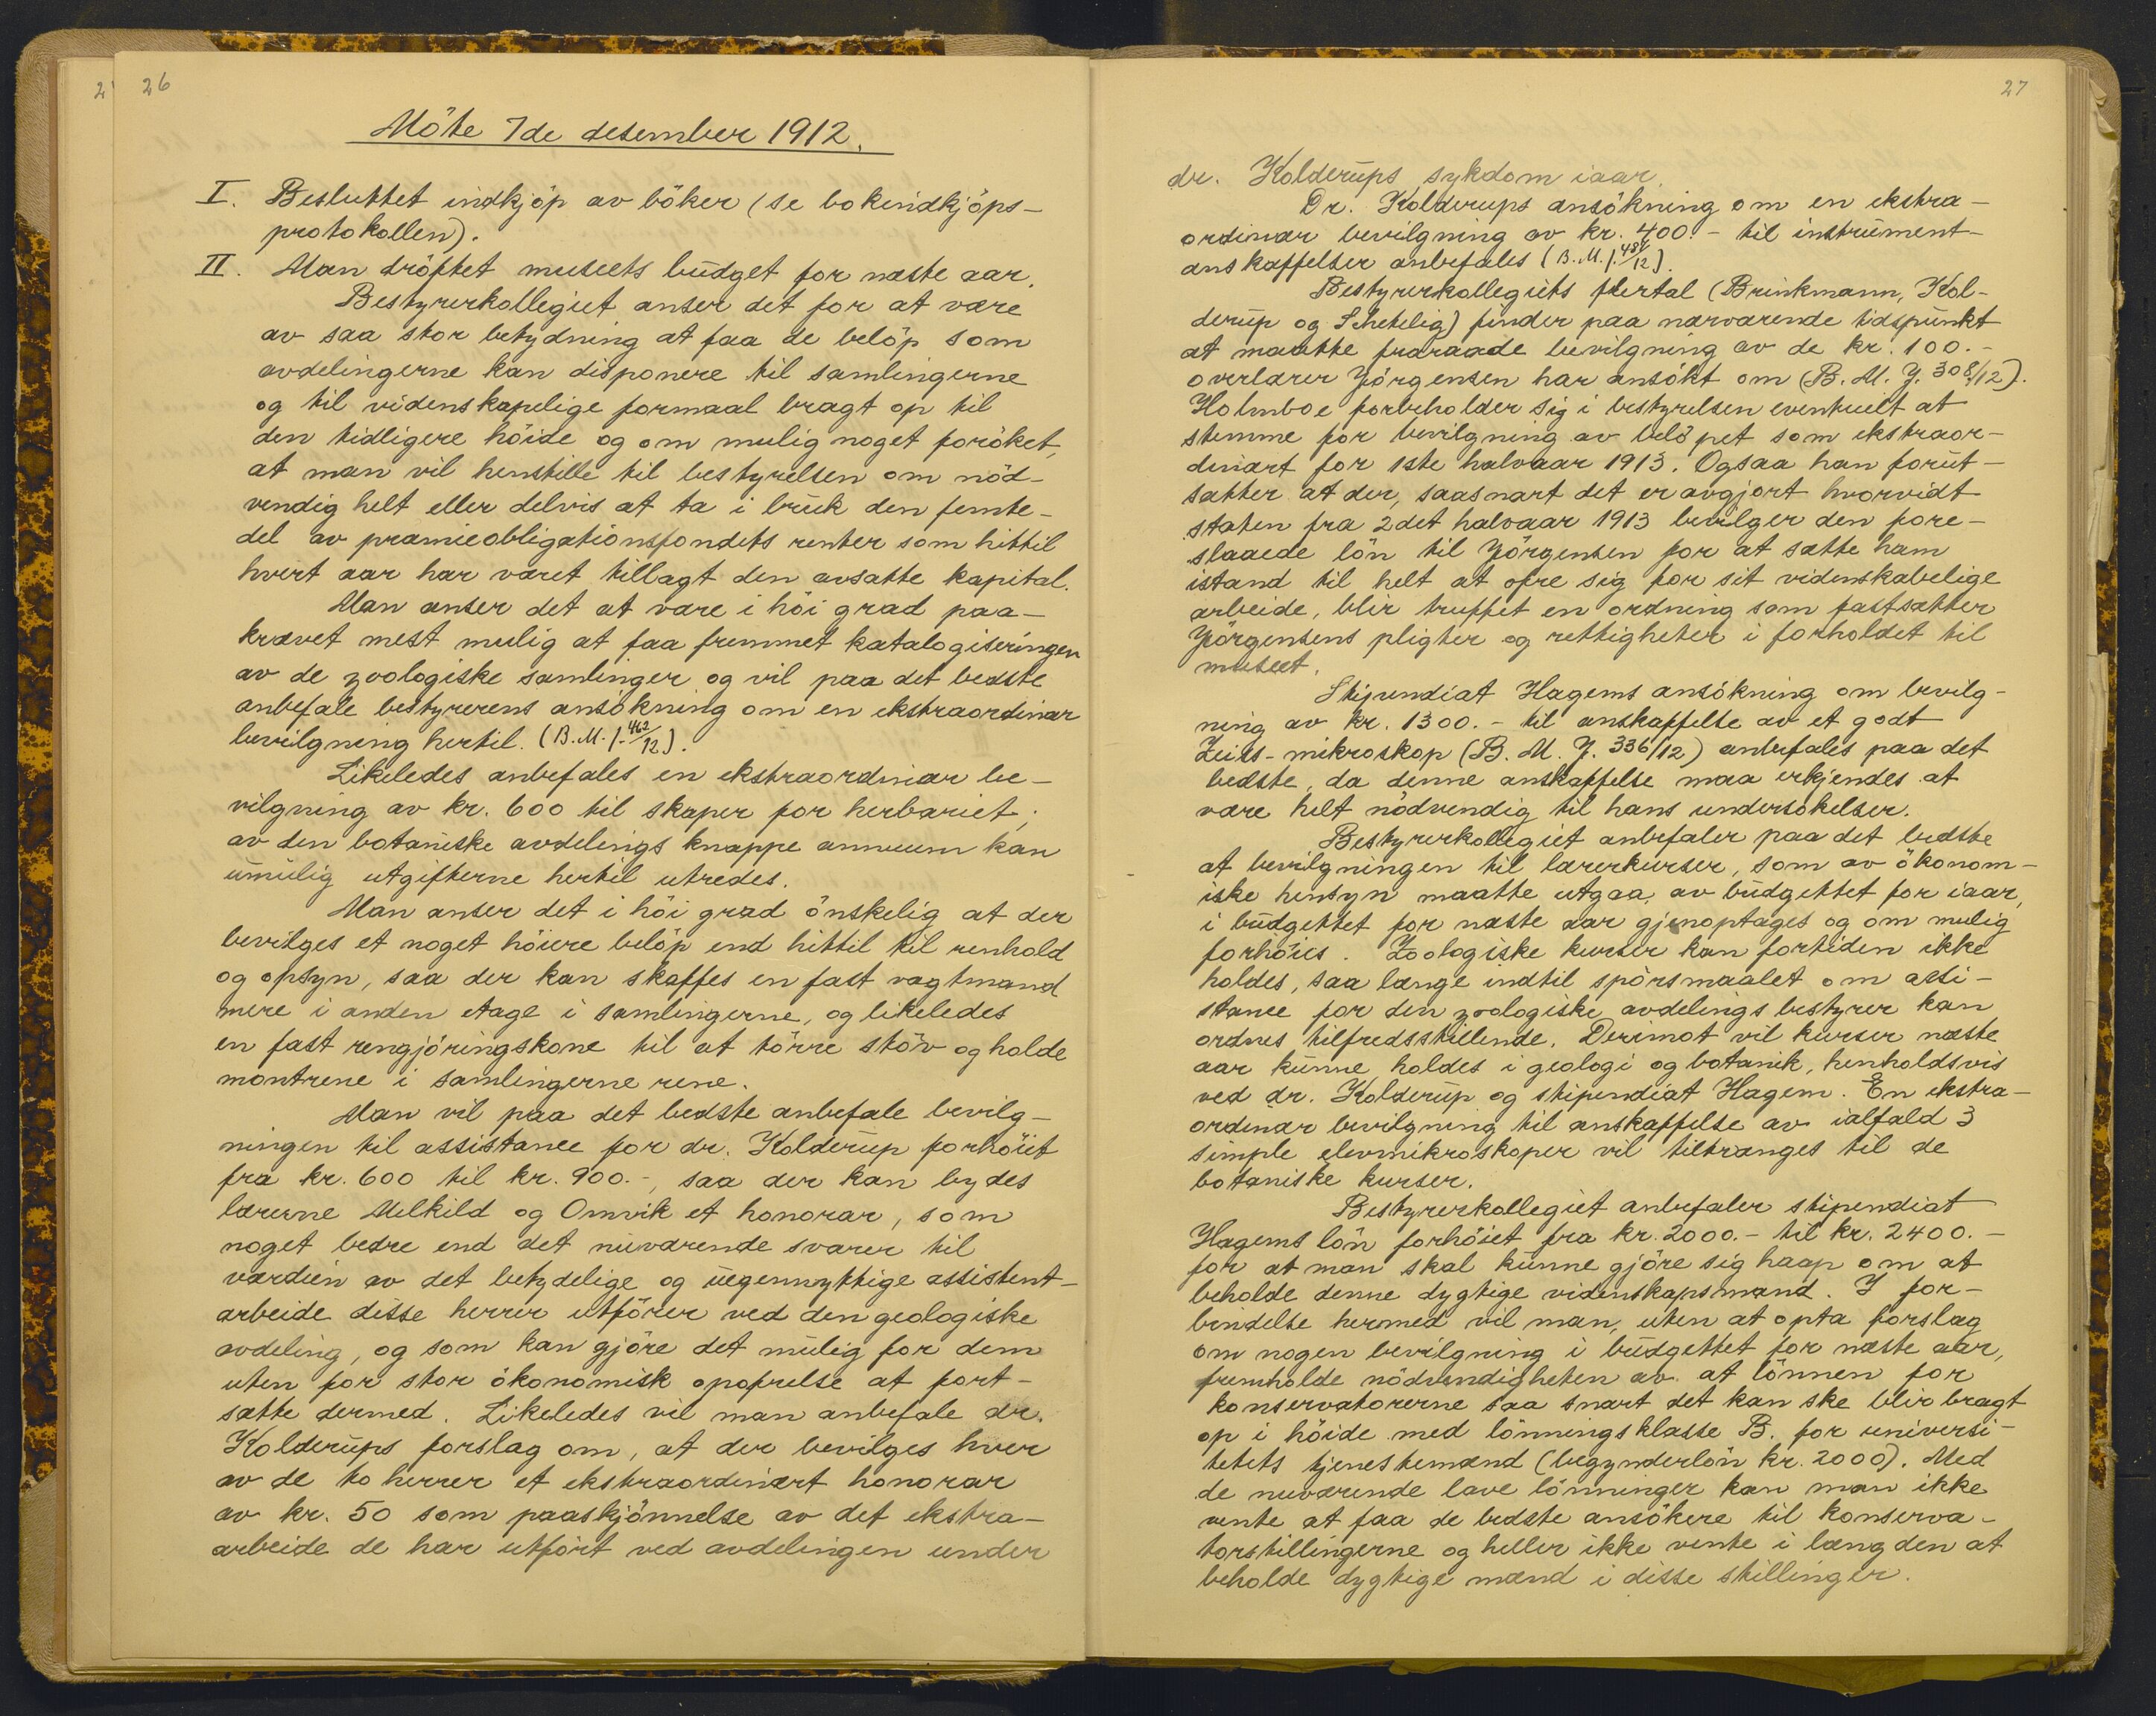 26
Möte 7de desember 1912.
I. Besluttet indkjöp av böker (se bokindkjöps-
protokollen).
II. Man dröftet museets budget for næste aar.
Bestyrerkollegiet anser det for at være
av saa stor betydning at faa de belöp som
avdelingerne kan disponere til samlingerne
og til videnskapelige formaal bragt op til
den tidligere höide og om mulig noget foröket,
at man vil henstille til bestyrelsen om nöd-
vendig helt eller delvis at ta i bruk den femte-
del av præmieobligationsfondets renter som hittil
hvert aar har været tillagt den avsatte kapital.
Man anser det at være i höi grad paa-
krævet mest mulig at faa fremmet katalogiseringen
av de zoologiske samlinger og vil paa det bedste
anbefale bestyrerens ansökning om en ekstraordinær
bevilgning hertil. (B.M.J. 462/12).
Likeledes anbefales en ekstraordinær be-
vilgning av kr. 600 til skaper for herbariet;
av den botaniske avdelings knappe annuum kan
umulig utgifterne hertil utredes.
Man anser det i höi grad önskelig at der
bevilges et noget höiere belöp end hittil til renhold
og opsyn, saa der kan skaffes en fast vagtmand
mere i anden etage i samlingerne, og likeledes
en fast rengjöringskone til at törre stöv og holde
montrene i samlingerne rene.
Man vil paa det bedste anbefale bevilg-
ningen til assistance for dr. Kolderup forhöiet
fra kr. 600 til kr. 900.-, saa der kan bydes
lærerne Melkild og Omvik et honorar, som
noget bedre end det nuværende svarer til
værdien av det betydelige og uegennyttige assistent-
arbeide disse herrer utförer ved den geologiske
avdeling, og som kan gjöre det mulig for dem
uten for stor ökonomisk opofrelse at fort-
sætte dermed. Likeledes vil man anbefale dr.
Kolderups forslag om, at der bevilges hver
av de to herrer et ekstraordinært honorar
av kr. 50 som paaskjönnelse av det ekstra-
arbeide de har utfört ved avdelingen under
27
dr. Kolderups sykdom iaar.
Dr. Kolderups ansökning om en ekstra-
ordinær bevilgning av kr. 400.- til instrument-
anskaffelser anbefales (B.M.J. /12).
Bestyrerkollegiets flertal (Brinkmann, Kol-
derup og Schetelig) finder paa nærværende tidspunkt
at maatte fraraade bevilgning av de kr. 100.-
overlærer Jörgensen har ansökt om (B.M.J. 308/12).
Holmboe forbeholder sig i bestyrelsen eventuelt at
stemme for bevilgning av belöpet som ekstraor-
dinært for 1ste halvaar 1913. Ogsaa han forut-
sætter at der, saasnart det er avgjort hvorvidt
staten fra 2det halvaar 1913 bevilger den fore-
slaaede lön til Jörgensen for at sætte ham
istand til helt at ofre sig for sit videnskabelige
arbeide, blir truffet en ordning som fastsætter
Jörgensens pligter og rettigheter i forholdet til
museet.
Stipendiat Hagems ansökning om bevilg-
ning av kr. 1300.- til anskaffelse av et godt
Zeiss-mikroskop (B.M.J. 336/12) anbefales paa det
bedste, da denne anskaffelse maa erkjendes at
være helt nödvendig til hans undersökelser.
Bestyrerkollegiet anbefaler paa det bedste
at bevilgningen til lærerkurser, som av ökonom-
iske hensyn maatte utgaa av budgettet for iaar,
i budgettet for næste aar gjenoptages og om mulig
forhöies. Zoologiske kurser kan fortiden ikke
holdes, saa længe indtil spörsmaalet om assi-
stance for den zoologiske avdelings bestyrer kan
ordnes tilfredsstillende. Derimot vil kurser næste
aar kunne holdes i geologi og botanik, henholdsvis
ved dr. Kolderup og stipendiat Hagem. En ekstra-
ordinær bevilgning til anskaffelse av ialfald 3
simple elevmikroskoper vil tiltrænges til de
botaniske kurser.
Bestyrerkollegiet anbefaler stipendiat
Hagems lön forhöiet fra kr. 2000.- til kr. 2400.-
for at man skal kunne gjöre sig haap om at
beholde denne dygtige videnskapsmand. I for-
bindelse hermed vil man, uten at opta forslag
om nogen bevilgning i budgettet for næste aar,
fremholde nödvendigheten av at lönnen for
konservatorerne saa snart det kan ske blir bragt
op i höide med lönningsklasse B. for universi-
tetets tjenestemænd (begynderlön kr. 2000). Med
de nuværende lave lönninger kan man ikke
vente at faa de bedste ansökere til konserva-
torstillingerne og heller ikke vente i længden at
beholde dygtige mænd i disse stillinger.